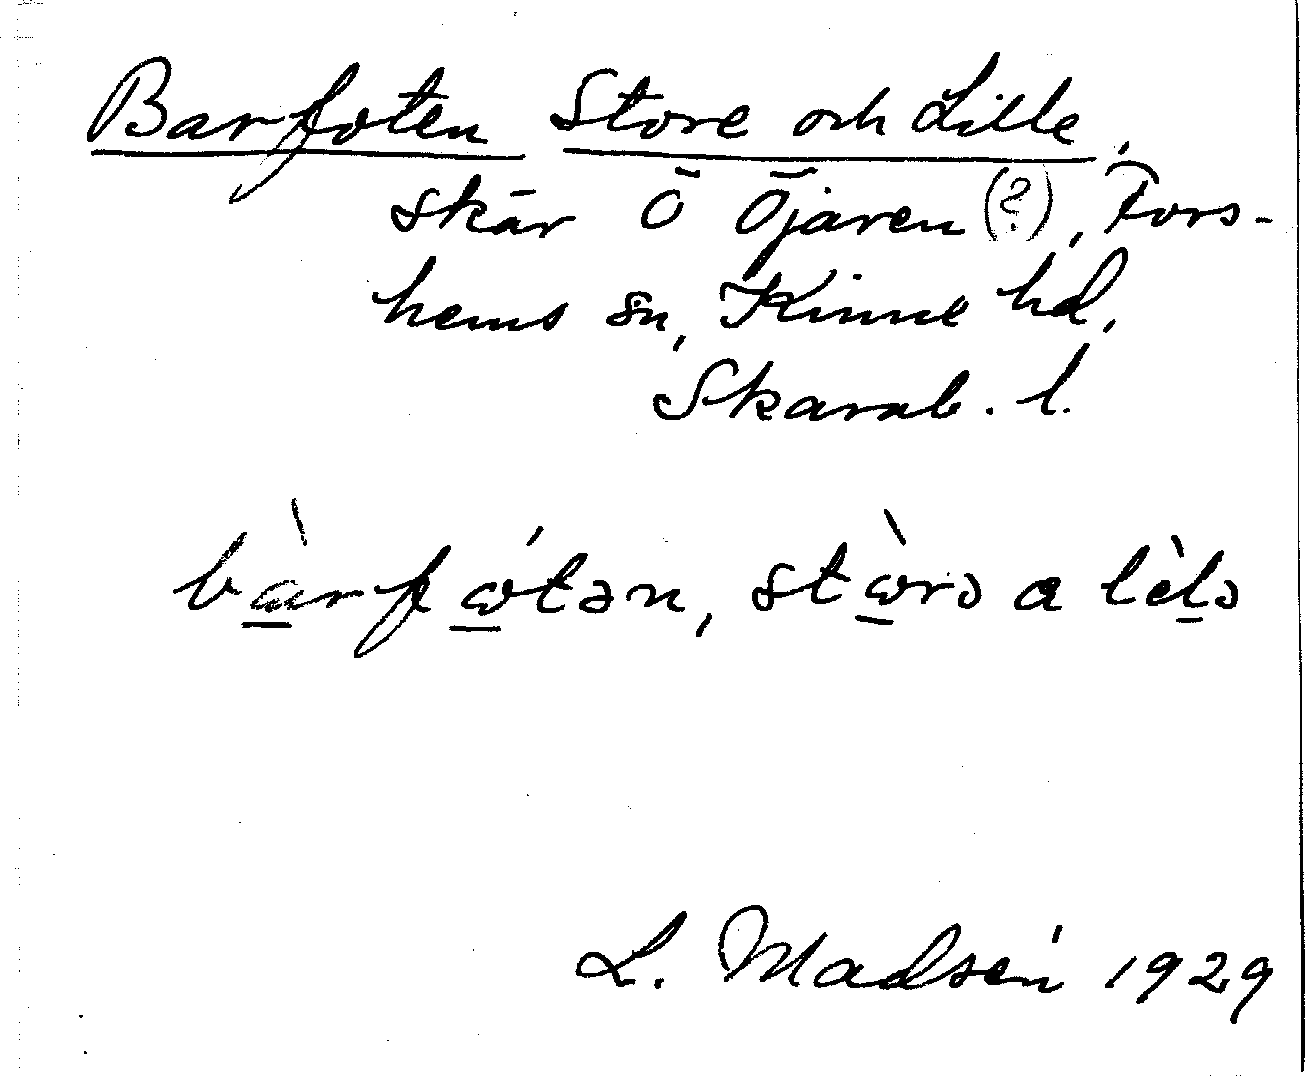 Barfoten Store och Lille,
skär Ö Öjaren (?), Fors-
hems sn, Kinne hd,
Skarab. l.
bàrfώtən, stὼrə a lèlə
L. Madsén 1929